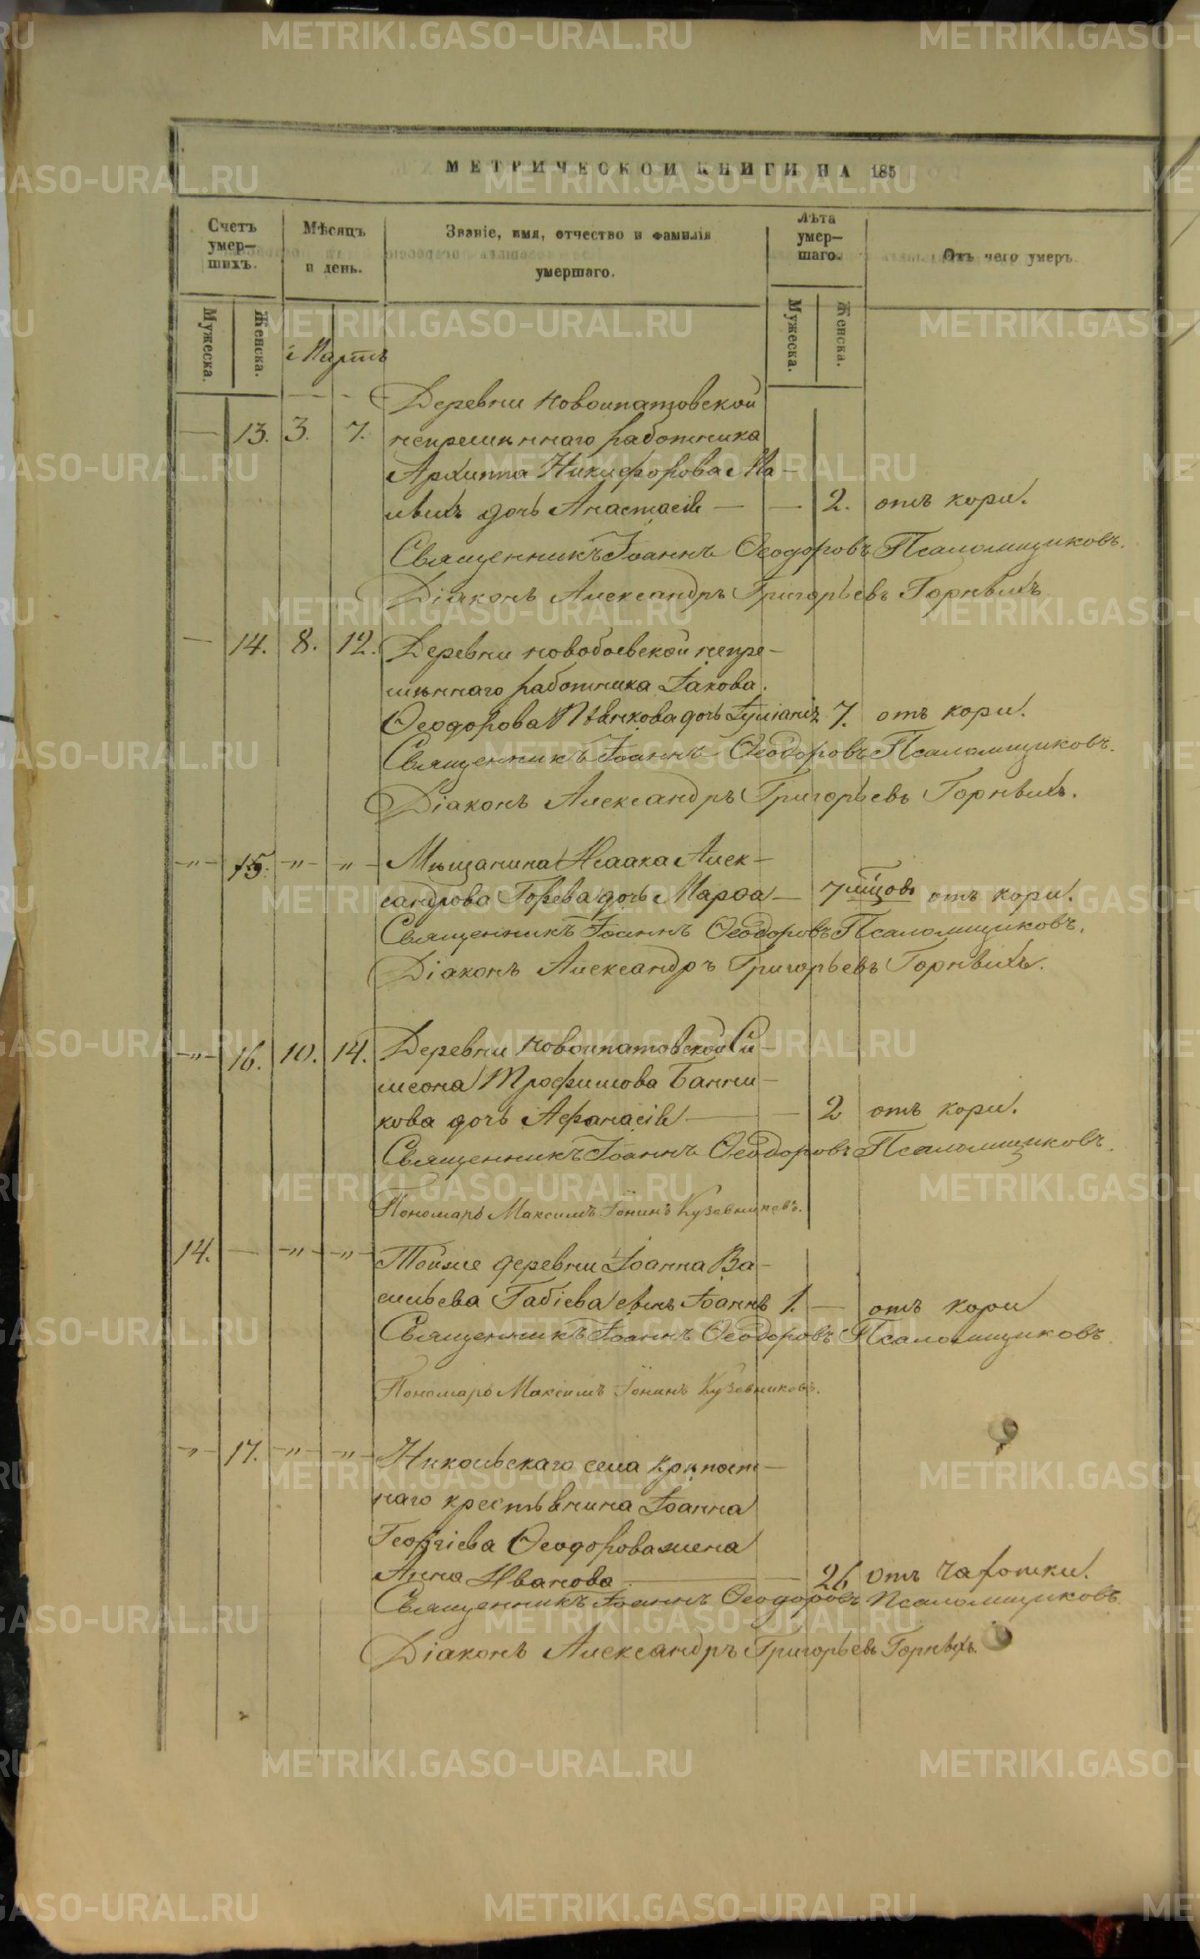 МЕТРИЧЕСКОЙ КНИГИ НА 185
Счетъ умер— шихъ.
Мѣсяцъ и день.
Званіе, имя, отчество и фамилія умершаго.
Лѣта умер— шаго.
Отъ чего умеръ.
Мужеска.
Женска.
Мужеска.
Женска.
Мартъ
Деревни новоипатовской
— 13. 3. 7. непремѣннаго работника
Архиппа Никифорова Ма—
дочь Анастасія — — 2. отъ кори.
Священникъ Іоаннъ Ѳеодоровъ Псаломщиковъ.
Діаконъ Александръ Григорьевъ Горныхъ
— 14. 8. 12. Деревни новобоевской непре—
мѣннаго работника Іакова
Ѳеодорова Пьянкова дочь Іуліанія 7. отъ кори.
Священникъ Іоаннъ Ѳеодоровъ Псаломщиковъ.
Діаконъ Александръ Григорьевъ Горныхъ.
—"— 15. —"— —"— Мѣщанина Исаака Алек—
сандрова Горева дочь Марѳа — 7 мѣсцовъ отъ кори.
Священникъ Іоаннъ Ѳеодоровъ Псаломщиковъ.
Діаконъ Александръ Григорьевъ Горныхъ.
—"— 16. 10. 14. Деревни новоипатовской Си—
меона Трофимова Банни—
кова дочь Афанасія — — 2 отъ кори.
Священникъ Іоаннъ Ѳеодоровъ Псаломщиковъ.
Пономарь Максимъ Іонинъ Кузовниковъ.
14. — —"— —"— Тойже деревни Іоанна Ва—
сильева Габіева сынъ Іоаннъ 1. — отъ кори
Священникъ Іоаннъ Ѳеодоровъ Псаломщиковъ.
Пономарь Максимъ Іонинъ Кузовниковъ.
—"— 17. —"— —"— Никольскаго села крѣпост—
наго крестьянина Іоанна
Георгіева Ѳеодорова жена
Анна Иванова — — 26 отъ чахотки.
Священникъ Іоаннъ Ѳеодоровъ Псаломщиковъ.
Діаконъ Александръ Григорьевъ Горныхъ.
METRIKI.GASO-URAL.RU